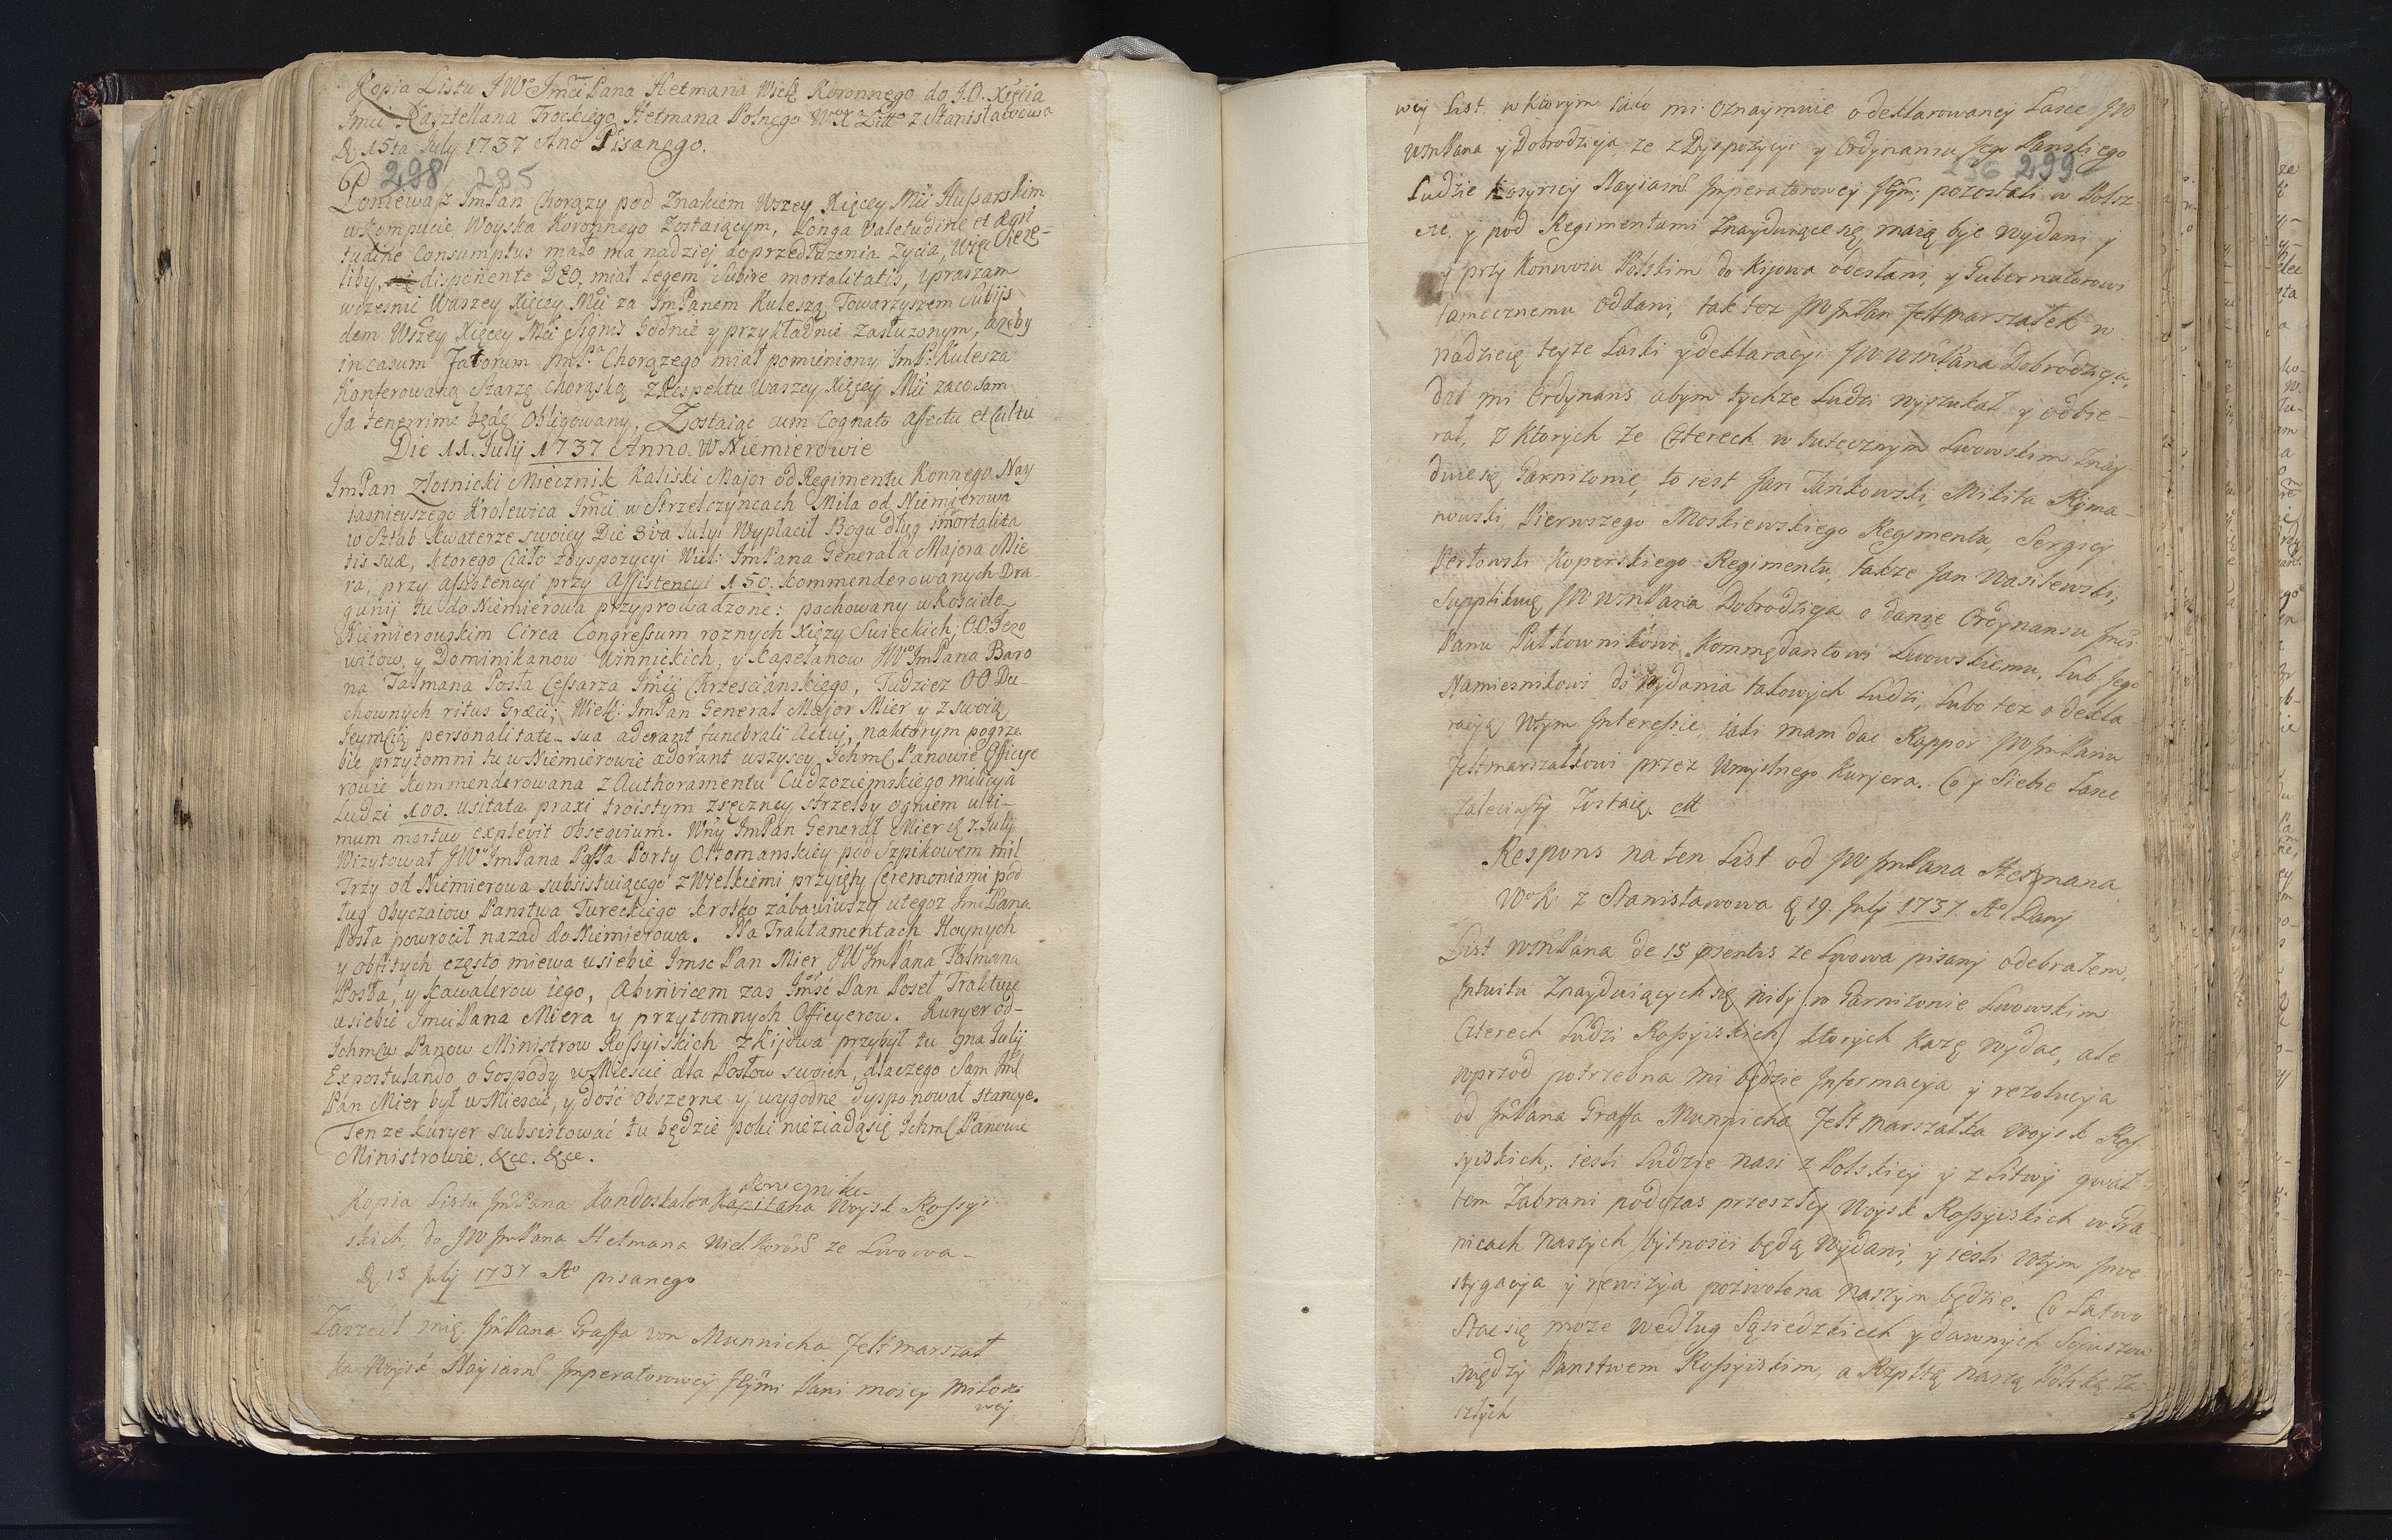 Kopia Listu JWo Jmci Pana Hetmana Wielk Koronnego do J.O. Xięcia
Jmci Kasztellana Trockiego Hetmana Polnego WoXa Litto z Stanisławowa
D 15ta July 1737 Ano Pisanego.
298 295
Poniewasz JmPan Chorązy pod Znakiem Wszey Xięcey Mci Hussarskim
w Kompucie Woyska Koronnego Zostaiącym, Longa Valetudine et aegri
tudine Consumptus mało ma nadziej do przedłuzenia Zycia, Więc ieze-
liby, disponente DEO, miał Legem Subire mortalitatis, upraszam
wczesnie Waszey Xięcey Mci za JmPanem Kuleszą Towarzyszem Subijs
dem Wszey Xięcey Mci Signis Godnie y przykładnie Zasłuzonym, azeby
in casum Fatorum JmPa Chorązego miał pomieniony JmP. Kulesza
Konferowaną Szarzę chorąską z Respektu Waszey Xięcey Mci za co sam
Ja tenerrime będę Obligowany, Zostaiąc cum Cognato Affectu et Cultu
Die 11. July 1737 Anno. W Niemierowie
JmPan Złotnicki Miecznik Kaliski Major od Regimentu Konnego Nay
iasnieyszego Krolewica Jmci w Strzelczyncach Mila od Niemierowa
w Sztab Kwaterze swoiey Die 3va July Wypłacił Bogu dług mortalita
tis suae, ktorego Ciało z dyspozycyi Wiel: JmPana Generała Majora Mie
ra, przy assistencyi przy Assistencyi 150. kommenderowanych Dra-
gunij tu do Niemierowa przyprowadzone: pochowany w Kosciele
Niemierowskim Circa Congressum roznych Xięzy Swieckich, O.O. Jezo
witow y Dominikanow Winnickich, y Kapelanow JWo JmPana Baro
na Talmana Posła Cessarza Jmci Chrzescianskiego, Tudziez OO Du-
chownych ritus Graeci; Wiel: JmPan Generał Major Mier y z swoią
Jeymcią personalitate sua aderant funebrali Actui, na ktorym pogrze
bie przytomni tu w Niemierowie adorant wszyscy Ichmc Panowie Officye
rowie kommenderowana z Authoramentu Cudzoziemskiego milicya
Ludzi 100. usitata praxi troistym z ręczney strzelby ogniem ulti-
mum mortuo explevit obsequium. Wny JmPan Generał Mier D 7. July
Wizytował JWo JmPana Posła Porty Ottomanskiey pod Szpikowem mil
Trzy od Niemierowa subsistuiącego z Wielkiemi przyięty Ceremoniami pod
ług Obyczaiow Panstwa Tureckiego krotko zabawiwszy u tegoz JmciPana
Posła powrocił nazad do Niemierowa. Na Traktamentach Hoynych
y obfitych często miewa u siebie Jmsc Pan Mier JWo JmPana Talmana
Posła, y Kawalerow iego, Abinvicem zas Jmść Pan Poseł Traktuie
u siebie JmciPana Miera y przytomnych Officyerow. Kuryer od-
Ichmcw Panow Ministrow Rossyiskich z Kijowa przybył tu 9na July
Expostulando o Gospody w Miescie dla Posłow swoich, dlaczego Sam Jmc
Pan Mier był w Miescie, y dość obszerne y wygodne dysponował stancye.
Tenze Kuryer subsistować tu będzie poki nieziadąsię Ichmc Panowie
Ministrowie. &ce. &ce.
Kopia Listu JmPana Kapitana Woysk Rossyi
skich do JW JmPana Hetmana Wiel. Koron ze Lwowa-
D 15 July 1737 Ao pisanego
Zaszedł mię JmPana Graffa von Munnicha Feltmarszał
ka Woysk Nayiasn Jmperatorowey Jeymci Pani moiey Miłosci
wey
wey List. w ktorym mi oznaymuie o deklarowaney Łasce JW
WmPana y Dobrodzieja ze z Dyspozycyi y Ordynansu Jego Panskiego
296 299
Ludzie Nayiasn Jmperatorowey Jeymci, pozostali w Polsz
cze. y pod Regimentami Znayduiące się, maią byc wydani y
y przy Konwoiu Polskim do Kijowa odesłani, y Gubernatorowi
tamecznemu oddani, tak tez JW JmPan Feltmarszałek w
nadzieię teyze Łaski y deklaracyi JW WmPana Dobrodzieja,
dał mi Ordynans abym tychze Ludzi wyszukał y odbie-
rał, z ktorych ze Czterech w tutecznym Lwowskim Znay
duie się Garnizonie, to iest Jan Jańkowski, Mikita Ryma-
nowski, Pierwszego Moskiewskiego Regimentu, Sergiey
Perłowski Koporskiego Regimentu, takze Jan Wasilewski;
Supplikuię JW WmPana Dobrodzieja o danie Ordynansu Jmci
Panu Pułkownikowi Kommędantowi Lwowskiemu, Lub Jego
Namiesnikowi do wydania takowych Ludzi, Lubo tez o dekla-
racyą wtym Interessie, iaki mam dac Rapport JW JmPanu
Feltmarszałkowi przez Umyslnego Kuryera. Co y Siebie Łasce
Zaleciwszy Zostaię. ett
Respons na ten List od JW JmPana Hetmana
WoK z Stanisławowa D 19. July 1737. Ao Dany
List WmPana de 15 psentis ze Lwowa pisany odebrałem,
Intuitu Znayduiących się w Garnizonie Lwowskim
Czterech Ludzi Rossyiskich ktorych kazę wydac, ale
wprzod potrzebna mi będzie Jnformacyja y rezolucyja
od JmPana Graffa Munnicha Felt marszałka Woysk Ros
syiskich, iesli Ludzie nasi z Polskiey y z Litwy gwał-
tem Zabrani podczas przeszłey Woysk Rossyiskich w Gra
nicach naszych bytnosci będą wydani, y iesli wtym Jnwe
stygacyja y rewizyja pozwolona naszym będzie. Co Łatwo
stac się moze według Sąsiedzkich y dawnych Sojuszow
między Panstwem Rossyiskim, a Rzpltą naszą Polską Za-
szłych